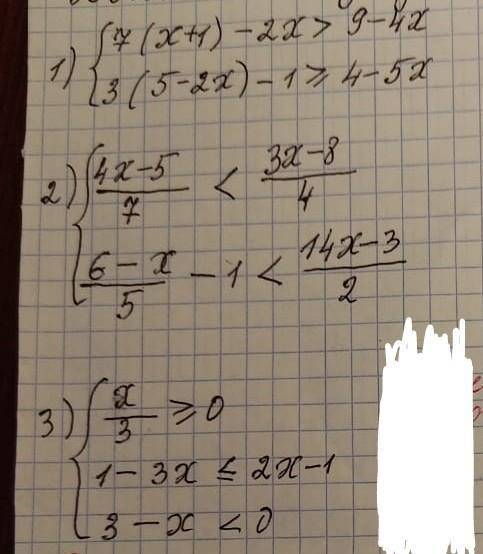 1) { 7(x+1) - 2x > 9 - 4x
3(5 - 2x) - 1 ≥ 4 - 5x
2) { (4x-5)/7 < (3x-8)/4
(6-x)/5 - 1 < (14x-3)/2
3) { x/3 ≥ 0
1 - 3x ≤ 2x - 1
3 - x < 0